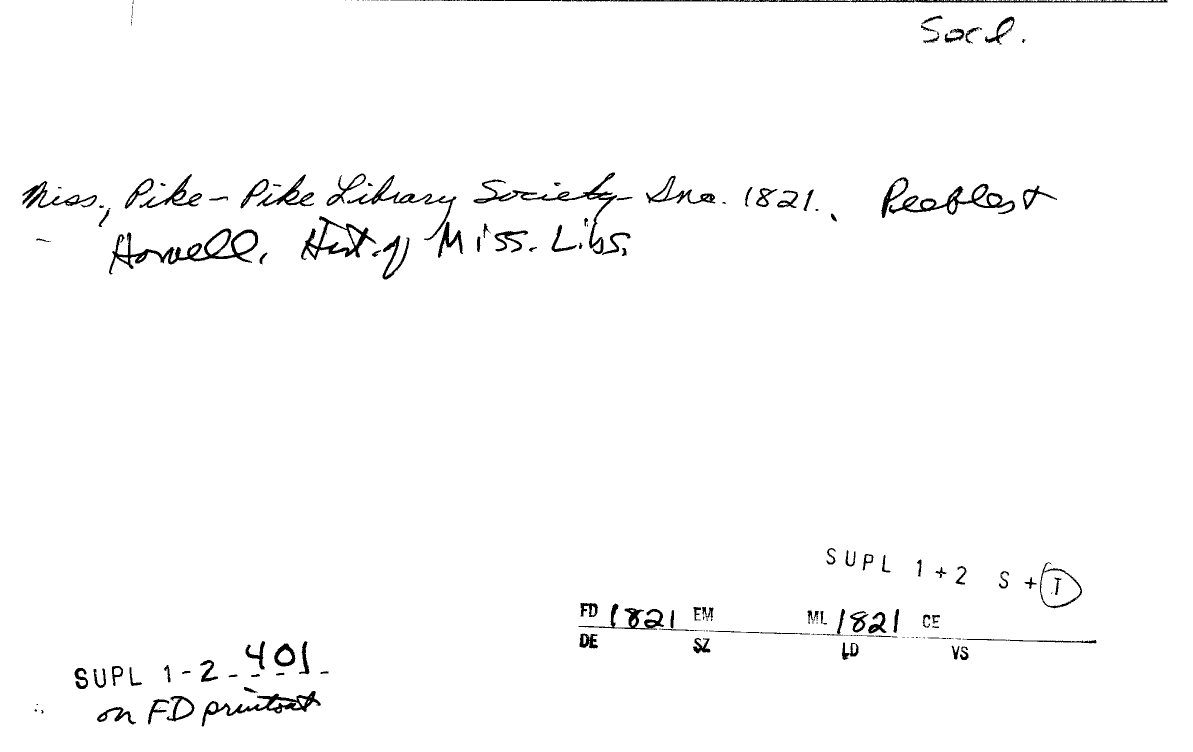 Socl.
Miss., Pike - Pike Library Society - Inc. 1821., Peebles +
Howell, Hist. of Miss. Libs.
SUPL 1+2 S + I
FD 1821 EM ML 1821 CE
DE SZ LD VS
SUPL 1-2 - 401 -
on FD printout